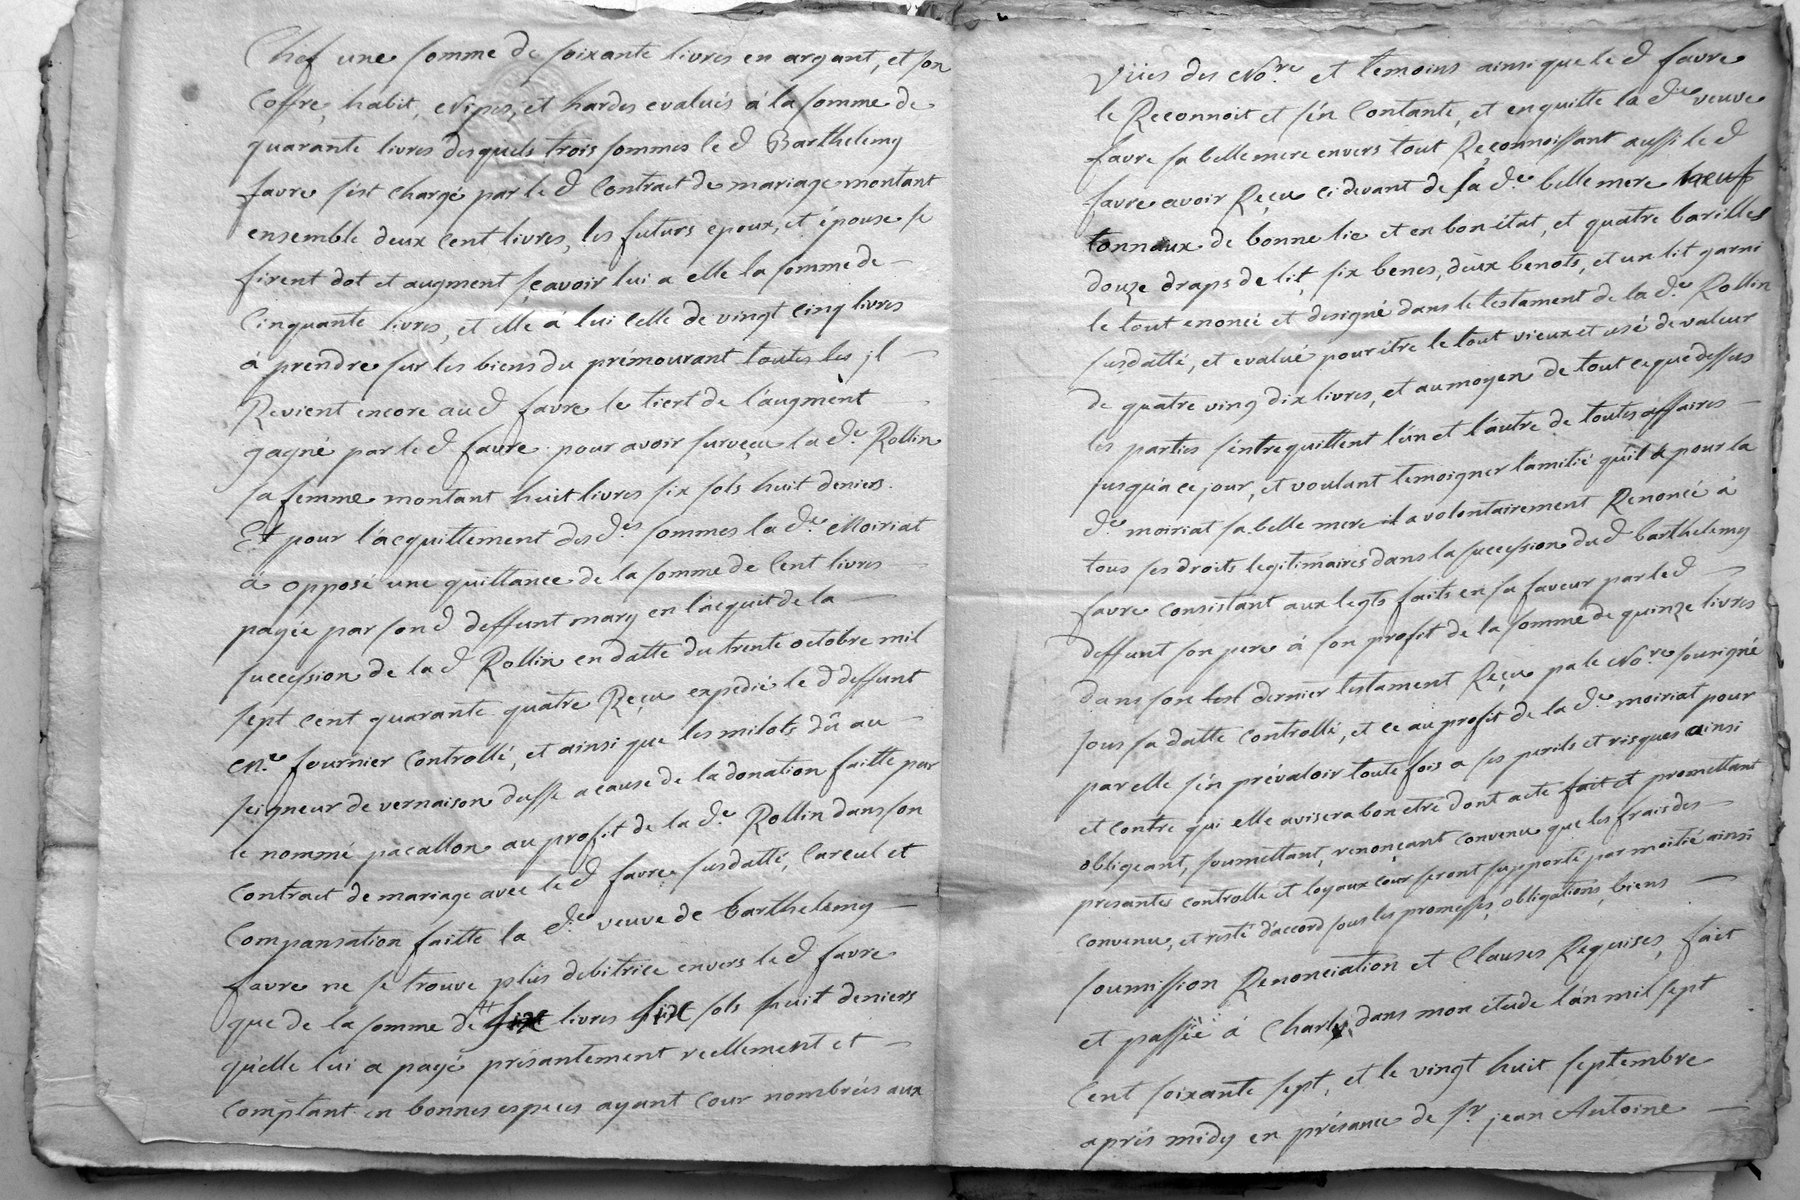 Chef une somme de soixante livres en argant, et son
Coffre, habit, Nipes, et hardes evalués á la somme de
quarante livres desquels trois sommes le d Barthelemy
favre s'est chargé par le d Contract de mariage montant
ensemble deux Cent livres, les futurs epoux, et épouse se
firent dot et augment sçavoir lui a elle la somme de
Cinquante livres, et elle á lui Celle de vingt Cinq livres
á prendre sur les biens du prémourant toutes les jl
Revient encore au d favre le tiert de l'augmènt
gagné par le d favre pour avoir survecu la d.e Rollin
sa femme montant huit livres six sols huit deniers.
Et pour l'acquittement des d.es sommes la d.e Moiriat
á opposé une quittance de la somme de Cent livres
payée par son d deffunt mary en l'acquit de la
succession de la d Rollin en datte du trente octobre mil
sept cent quarante quatre Reçu expedié le d deffunt
M.e fournier Controllé, et ainsi que les milots dû au
seigneur de vernaison a cause de la donation faitte par
le nommé pacallon au profit de la d.e Rollin dans son
Contract de mariage avec le d favre susdatté, Careul et
Compansation faitte la d.e veuve de barthelemy
favre ne se trouve plus debitrice envers le d favre
que de la somme de livres six sols huit deniers
qu'elle lui a payé présantement reellement et
Comptant en bonnes especes ayant Cour nombrées aux
Vües des No.re et temoins ainsi que le d favre
le Reconnoit et s'en Contante, et en quitte la d.e veuve
favre sa belle mere envers tout Reconnoissant aussi le d
favre avoir Reçu ci devant de sa d.e belle mere neuf
tonnaux de bonne lie et en bon état, et quatre barilles
douze draps de lit, six bencs, deux benots, et un lit garni
le tout enoncé et designé dans le testament de la d.e Rollin
susdatté, et evalué pour être le tout vieux et usé de valeur
de quatre vingt dix livres, et au moyen de tout ce que dessus
les parties s'entrequittent l'un et l'autre de toutes affaires
jusqu'a ce jour, et voulant temoigner l'amitié qu'il a pour la
d.e moiriat sa belle mere il a volontairement Renoncé á
tous ses droits legitimaires dans la succession du d barthelemy
favre Consistant aux legts faits en sa faveur par le d
deffunt son pere á son profit de la somme de quinze livres
dans son dernier testament Reçu pa le No.re sousigné
sous sa datte Controllé, et ce au profit de la d.e moiriat pour
par elle s'en prévaloir toute fois a ses perils et risques ainsi
et Contre qui elle avisera bon etre dont acte fait et promettant
obligeant, soumettant, renonçant Convenu que les frais des
présantes controlle et loyaux cour seront supporté par moitié ainsi
Convenu, et resté d'accord sous les promesses, obligations, biens
soumission Renonciation et Clauses Requises, fait
et passéé á Charly dans mon étude l'an mil sept
Cent soixante sept, et le vingt huit septembre
aprés midy en présance de s.r jean Antoine